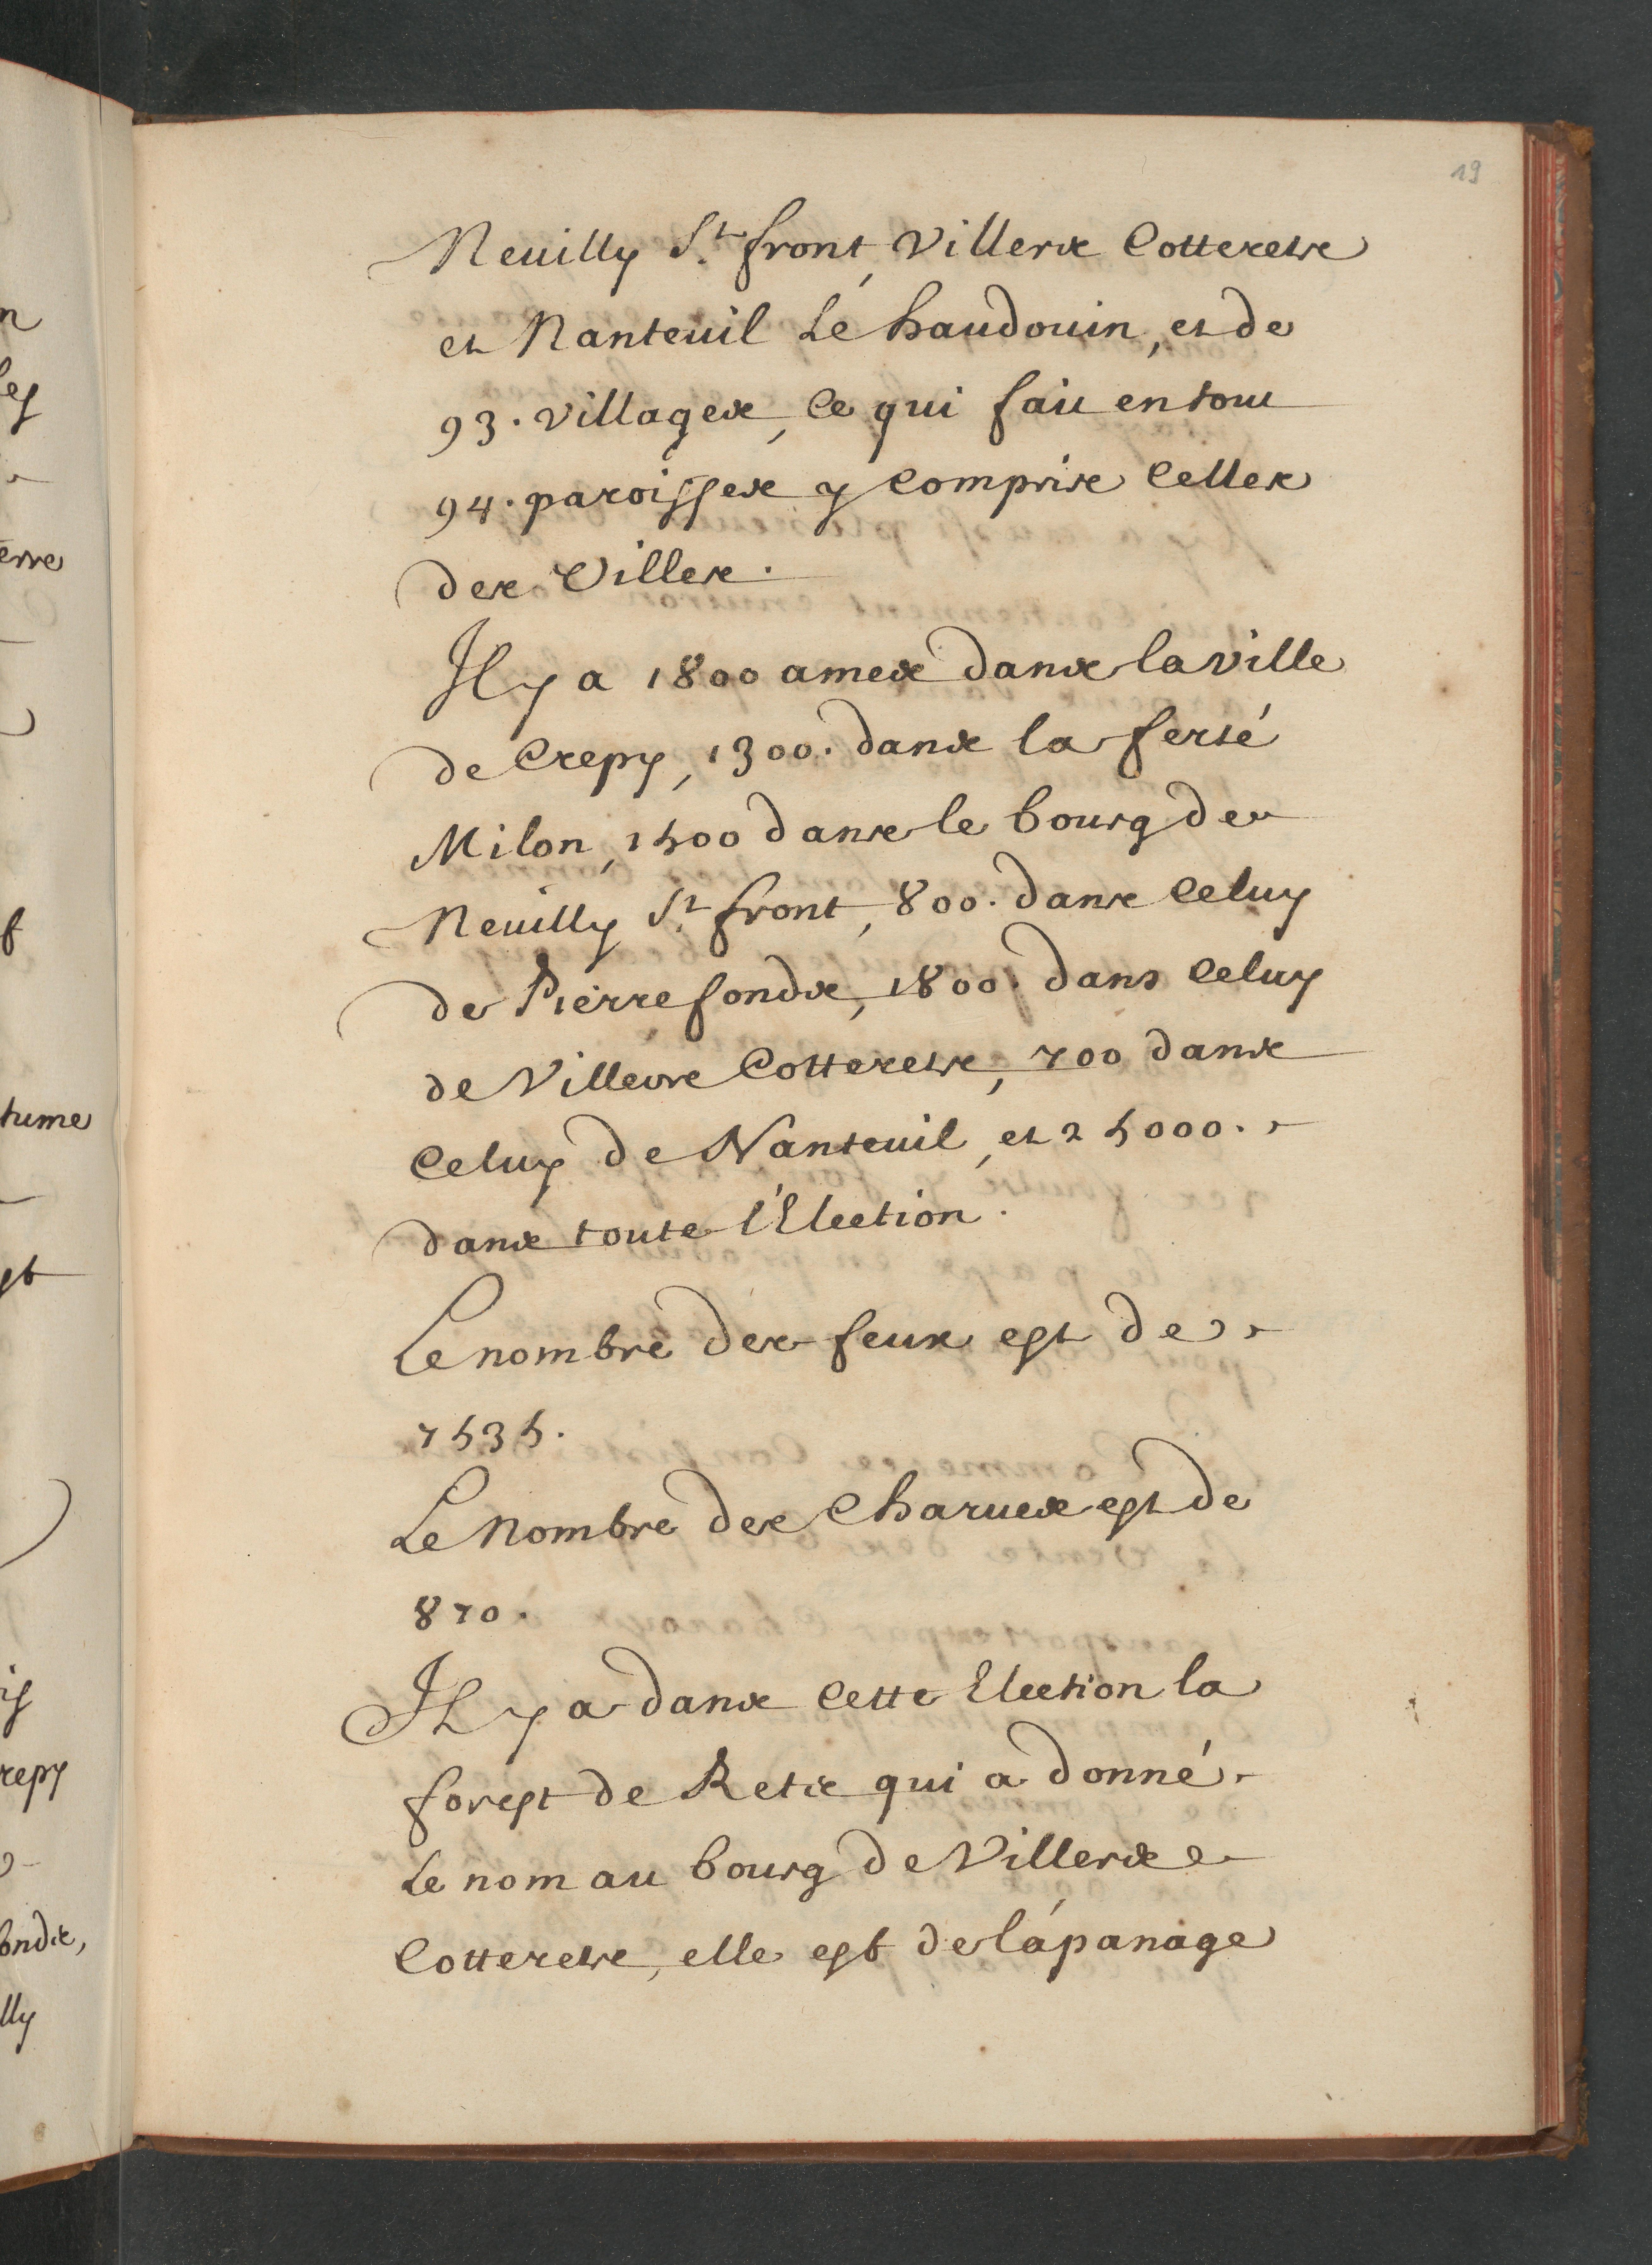 19
Neuilly St. front, Villers Cotterets
et Nanteuil Le haudouin, et de
93. villages, Ce qui fait en tout
94. paroisses y Compris Celles
des Villes.
Il y a 1800 ames dans la ville
de Crepy, 1300. dans la ferté
Milon, 1500 dans le bourg de
Neuilly St. front, 800. dans Celuy
de Pierrefonds, 1800. dans Celuy
de Villers Cotterets, 700 dans
Celuy de Nanteuil, et 25000.
dans toute l'Election.
Le nombre des feux est de
7535.
Le Nombre des Charues est de
870.
Il y a dans Cette Election la
forest de Rets qui a donné
Le nom au bourg de Villers
Cotterets, elle est de l'apanage